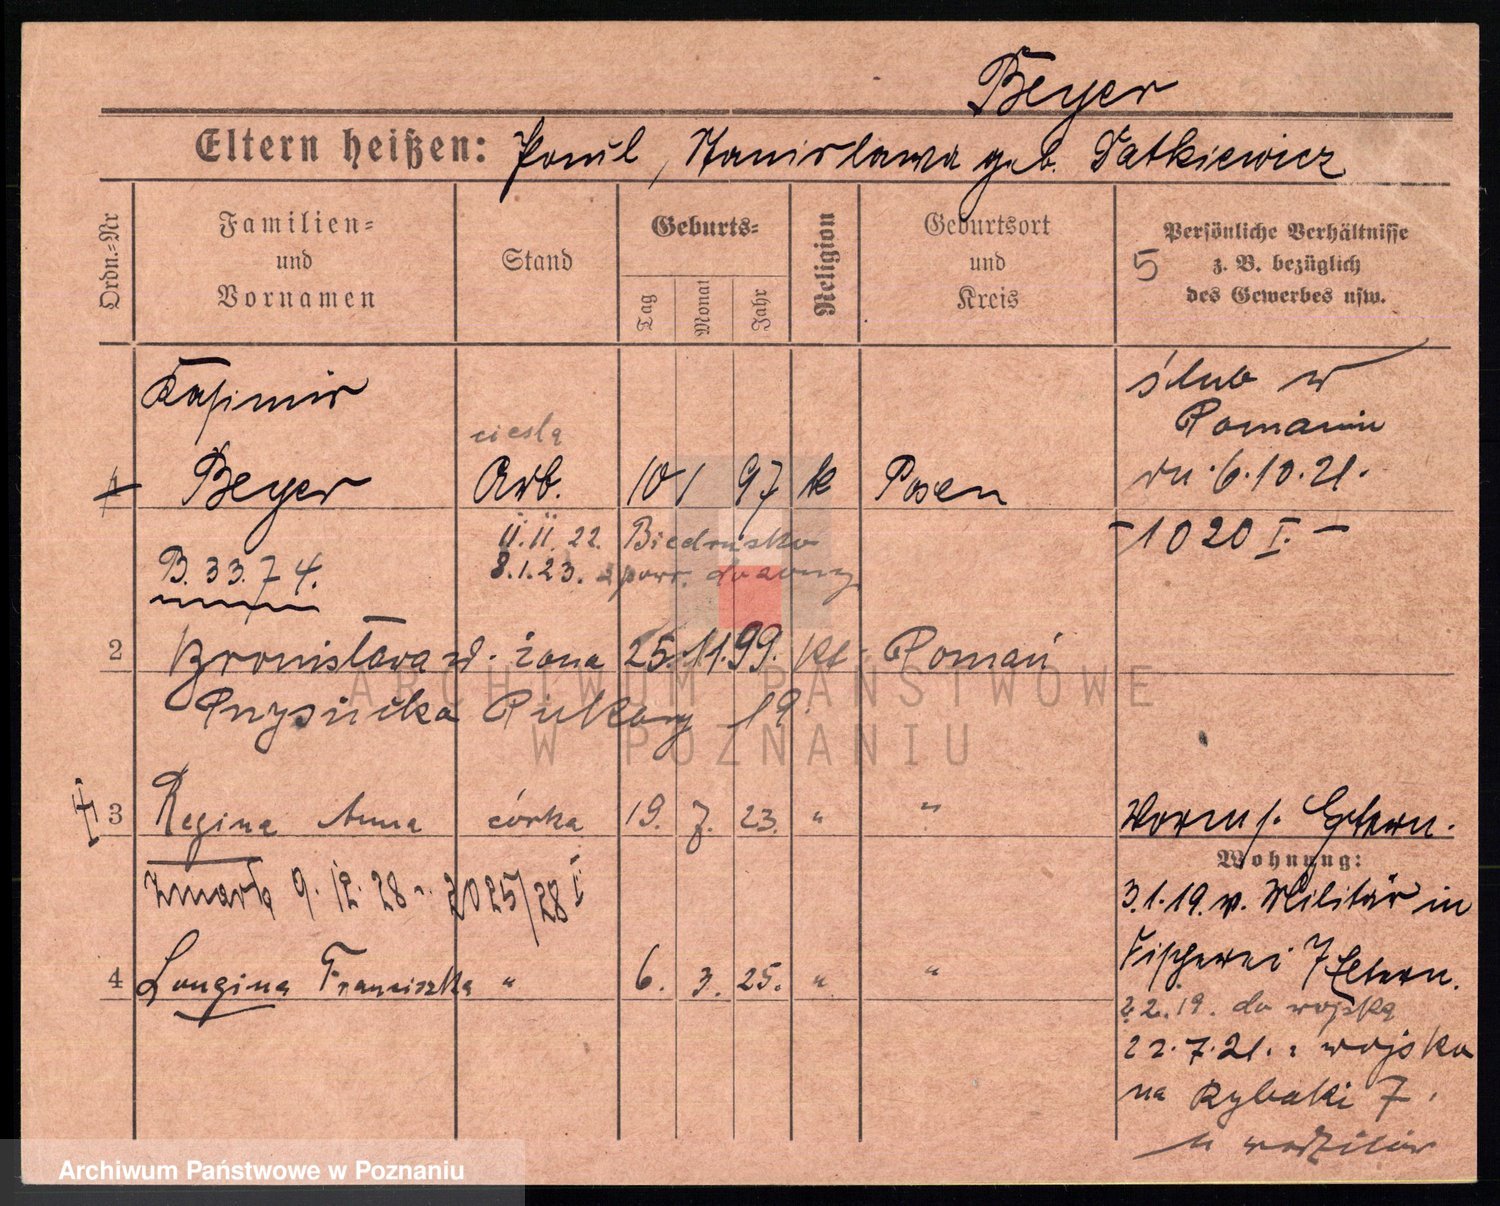 Beyer
Eltern heißen: Paul, Stanislawa geb. Tatkiewicz
Ordn.-Nr
Familien- und Vornamen
Stand
Geburts-
Tag
Monat
Jahr
Religion
Geburtsort und Kreis
Persönliche Verhältnisse z. B. bezüglich des Gewerbes usw.
5
Kasimir
cieśla
1 Beyer Arb. 10 1 97 k Posen
ślub w
Poznaniu
dn. 6.10.21.
-1020 I.-
11.11.22. Biedrusko
B. 3374.
8.1.23. z powr. do żony
2 Bronisława żona 25. 11. 99. kt. Poznań
19.
3 Regina Anna córka 19. 7. 23. " "
Zmarła 9.12.28 2025/28 I
4 Longina Franciszka " 6. 3. 25. " "
Eltern.
Wohnung:
3.1.19. v. Militär in
Fischerei 7 Eltern.
2.2.19. do wojska
22.7.21. z wojska
na Rybaki 7.
u rodziców
ARCHIWUM PAŃSTWOWE
W POZNANIU
Archiwum Państwowe w Poznaniu